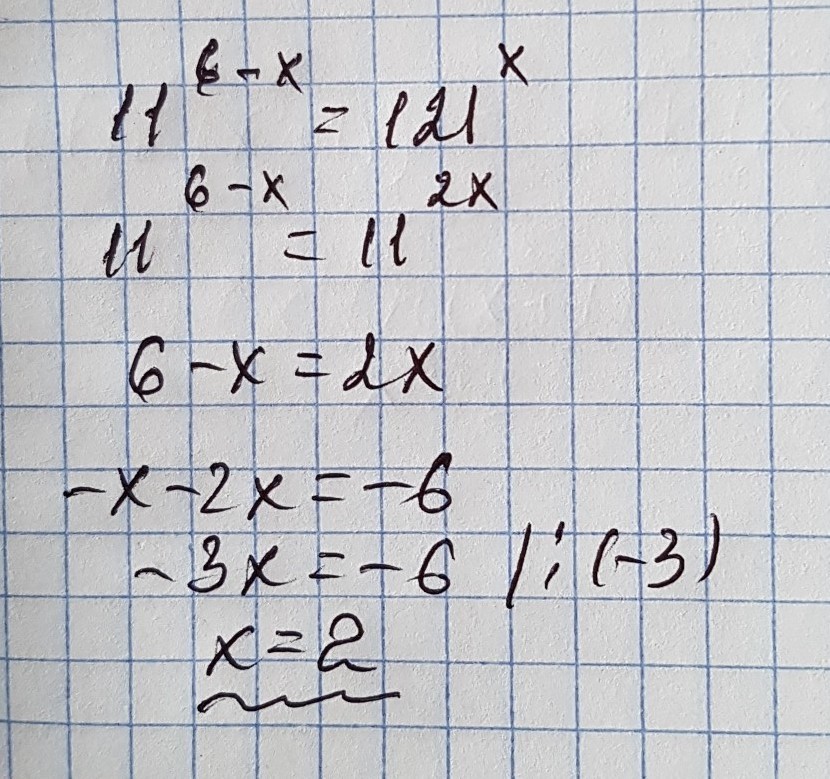 11^{6-x} = 121^{x}
11^{6-x} = 11^{2x}
6-x=2x
-x-2x=-6
-3x=-6 /:(-3)
x=2